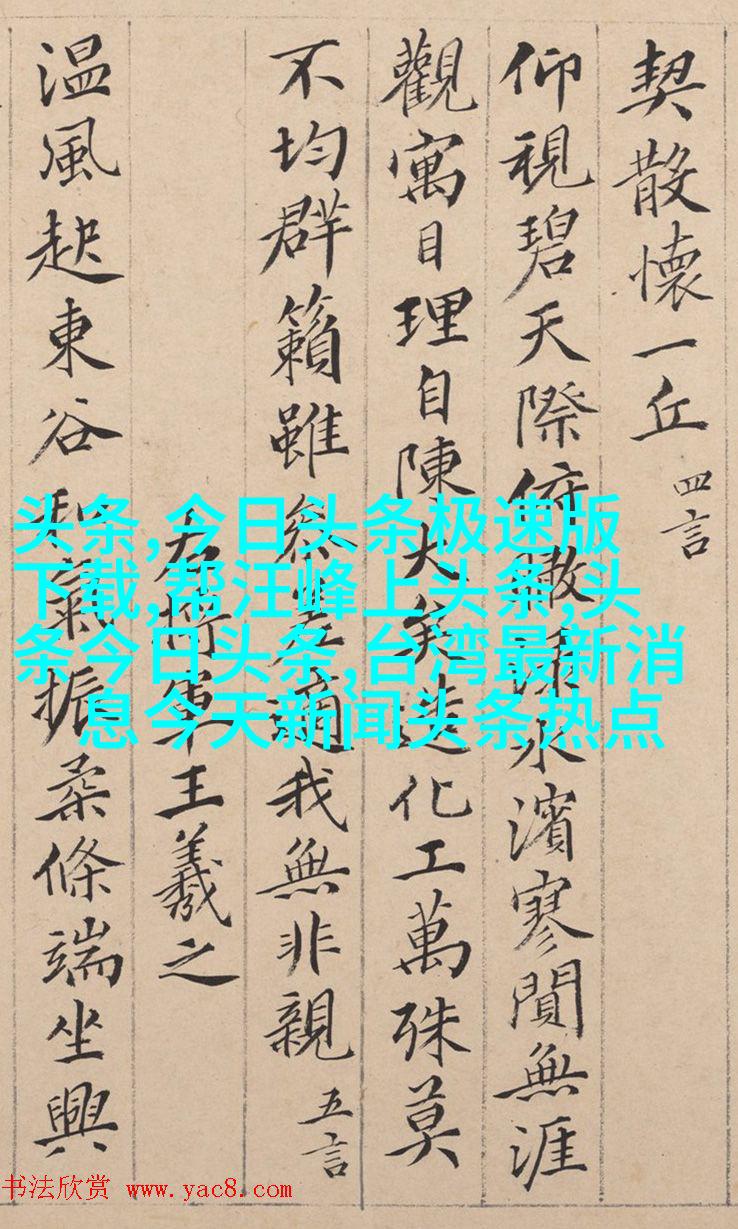 契散懷一丘 四言
仰視碧天際俯瞰淥水濱寥閴無涯
觀寓目理自陳大矣造化工萬殊莫
不均群籟雖參差適我無非親 五言
右將軍王羲之
温風起東谷和氣振柔條端坐興
头条,今日头条极速版
下载,帮汪峰上头条,头
条今日头条,台湾最新消
息今天新闻头条热点
书法欣赏 www.yac8.com